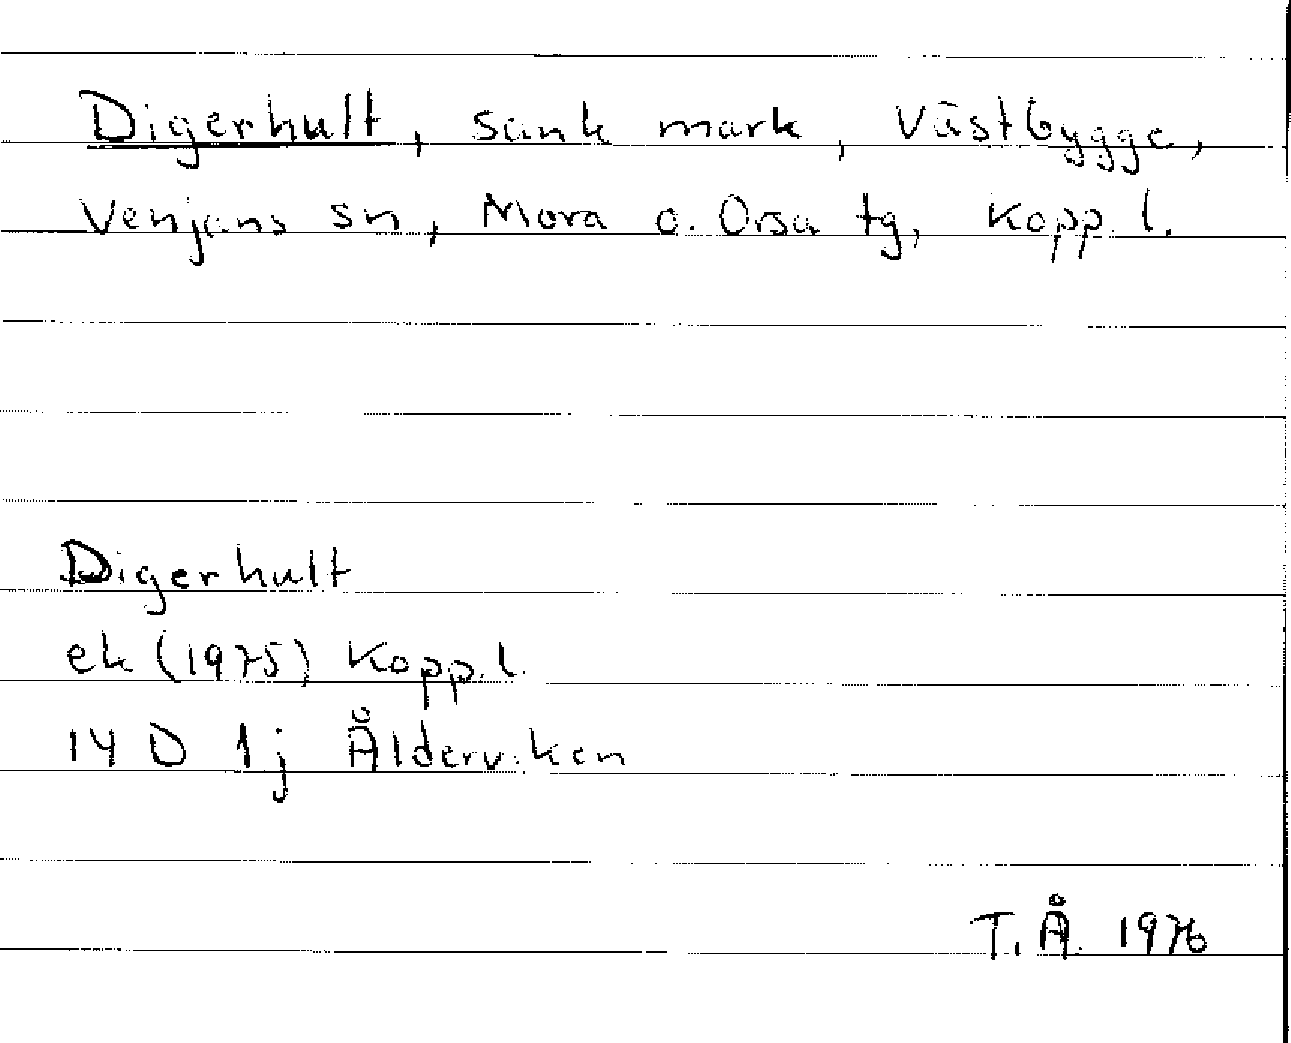 Digerhult, sank mark, Västbygge,
Venjans sn, Mora o. Orsa tg, Kopp. l.
Digerhult
ek (1975) Kopp. l.
14 D 1j Ålderviken
T. Å. 1976